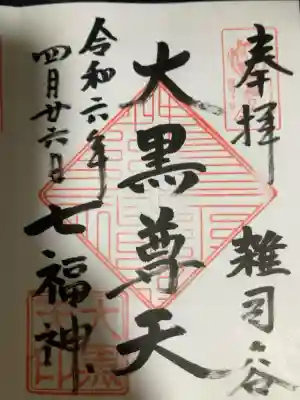 奉拝
雑司ヶ谷
大黒尊天
令和六年
四月廿六日
七福神